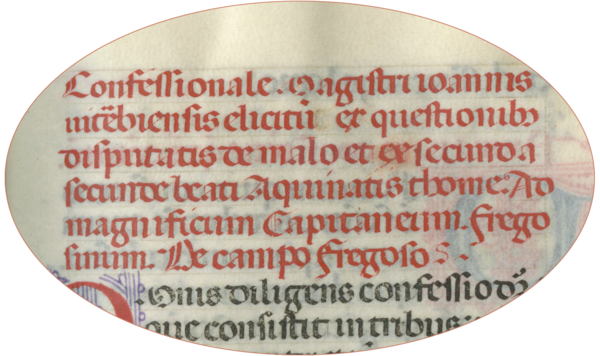 Confessionale. Magistri ioannis
uitēbiensis elicitū ex questionibꝫ
disputatis de malo et ex secunda
secunde beati Aquinatis thome: Ad
magnificum Capitaneum. frego
sinum. De campo fregoso
Omis diligens confessio dꝫ
que consistit in tribus: